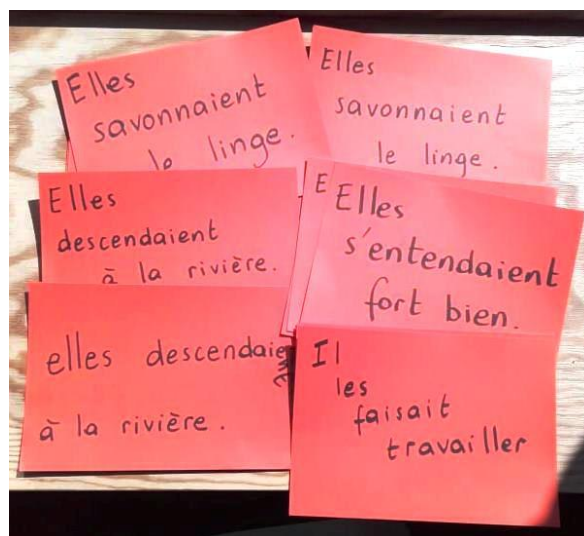 Elles
savonnaient
le linge.
Elles
savonnaient
le linge.
Elles
descendaient
à la rivière.
E
Elles
s'entendaient
fort bien.
elles descendaient
à la rivière.
Il
les
faisait
travailler